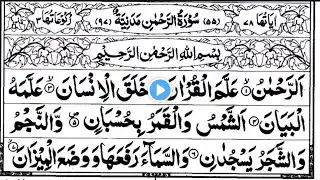 اٰیاتها ٧٨ (٥٥) سُوْرَةُ الرَّحْمٰنِ مَدَنِيَّةٌ (٩٧) رُكُوْعَاتُهَا ٣
بِسْمِ اللهِ الرَّحْمٰنِ الرَّحِيْمِ
اَلرَّحْمٰنُ ۙ﴿١﴾ عَلَّمَ الْقُرْاٰنَ ؕ﴿٢﴾ خَلَقَ الْاِنْسَانَ ۙ﴿٣﴾ عَلَّمَهُ
الْبَيَانَ ﴿٤﴾ اَلشَّمْسُ وَالْقَمَرُ بِحُسْبَانٍ ﴿٥﴾ وَّالنَّجْمُ
وَالشَّجَرُ يَسْجُدٰنِ ﴿٦﴾ وَالسَّمَآءَ رَفَعَهَا وَوَضَعَ الْمِيْزَانَ